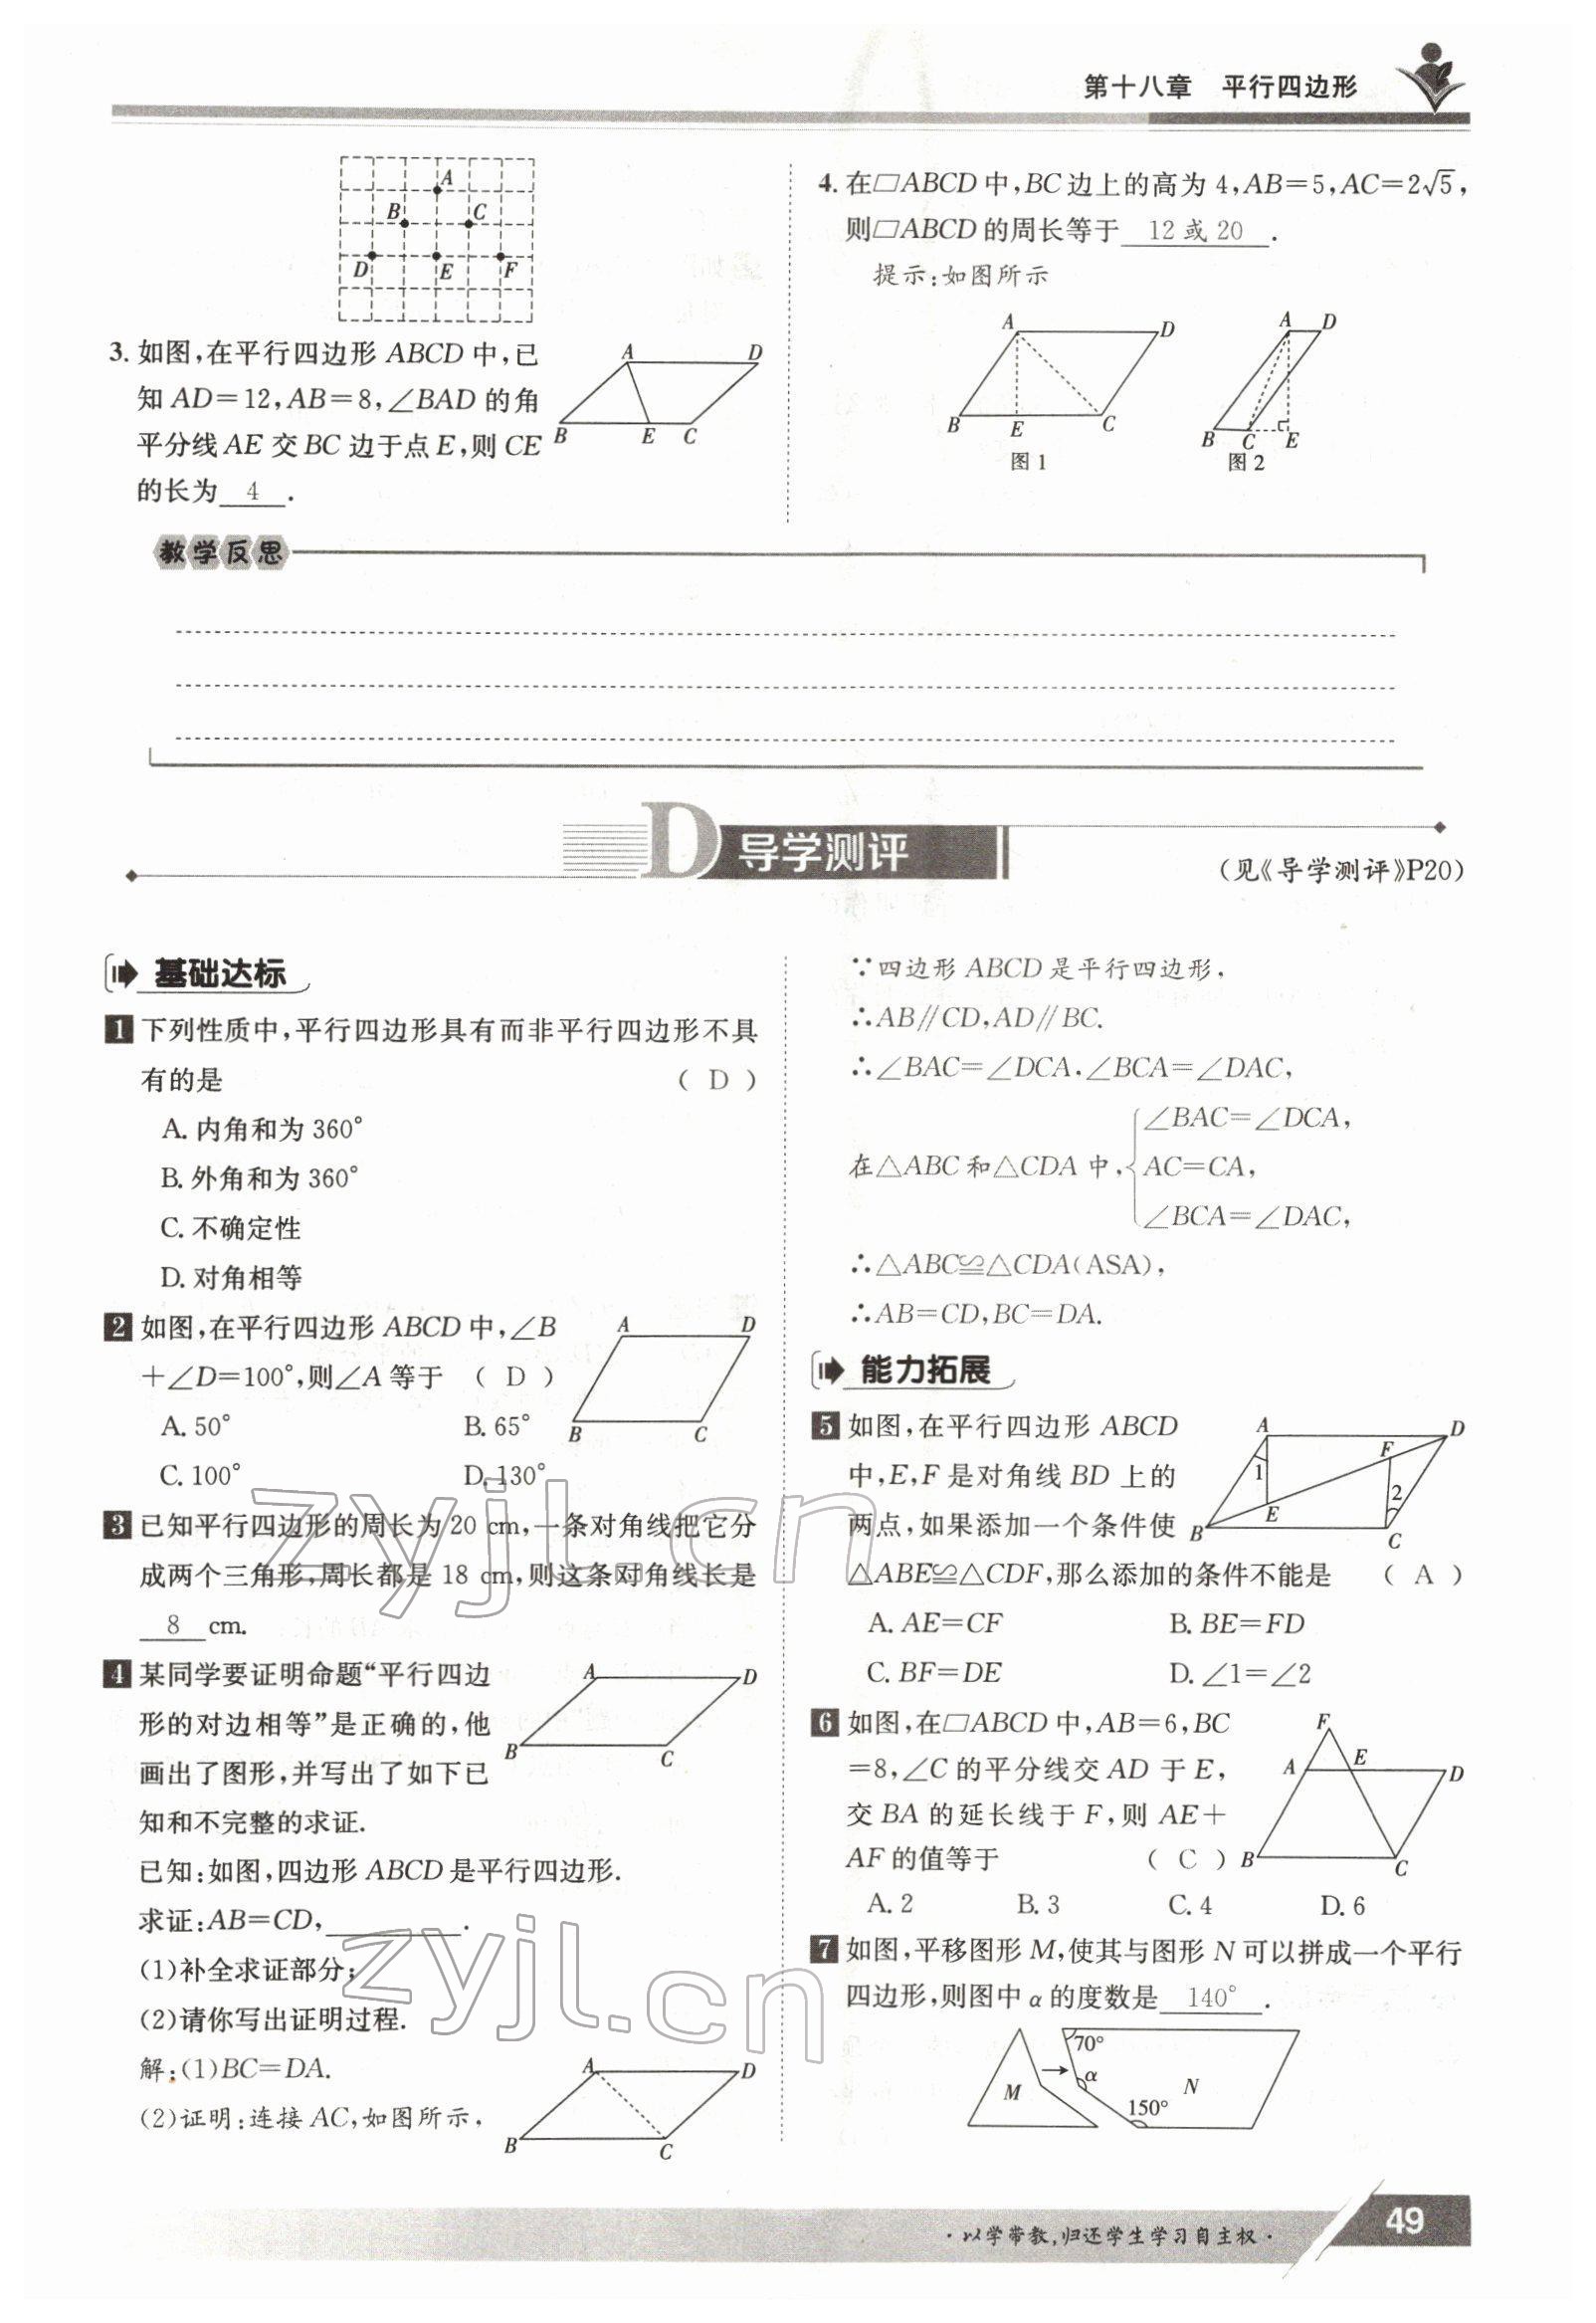 第十八章　平行四边形
A
B
C
D
E
F
3. 如图,在平行四边形 ABCD 中,已
知 AD=12,AB=8,∠BAD 的角
平分线 AE 交 BC 边于点 E,则 CE
的长为 4 .
A
D
B
E
C
4. 在▱ABCD 中,BC 边上的高为 4,AB=5,AC=2√5,
则▱ABCD 的周长等于 12 或 20 .
提示:如图所示
A
D
B
E
C
图 1
A
D
B
C
E
图 2
教学反思
D 导学测评
(见《导学测评》P20)
基础达标
1 下列性质中,平行四边形具有而非平行四边形不具
有的是 ( D )
A. 内角和为 360°
B. 外角和为 360°
C. 不确定性
D. 对角相等
2 如图,在平行四边形 ABCD 中,∠B
+∠D=100°,则∠A 等于 ( D )
A. 50° B. 65°
C. 100° D. 130°
A
D
B
C
3 已知平行四边形的周长为 20 cm,一条对角线把它分
成两个三角形,周长都是 18 cm,则这条对角线长是
8 cm.
4 某同学要证明命题“平行四边
形的对边相等”是正确的,他
画出了图形,并写出了如下已
知和不完整的求证.
A
D
B
C
已知:如图,四边形 ABCD 是平行四边形.
求证:AB=CD, .
(1)补全求证部分;
(2)请你写出证明过程.
解:(1)BC=DA.
(2)证明:连接 AC,如图所示,
A
D
B
C
∵四边形 ABCD 是平行四边形,
∴AB∥CD,AD∥BC.
∴∠BAC=∠DCA,∠BCA=∠DAC,
∠BAC=∠DCA,
在△ABC 和△CDA 中, AC=CA,
∠BCA=∠DAC,
∴△ABC≌△CDA(ASA),
∴AB=CD,BC=DA.
能力拓展
5 如图,在平行四边形 ABCD
中,E,F 是对角线 BD 上的
两点,如果添加一个条件使
△ABE≌△CDF,那么添加的条件不能是 ( A )
A. AE=CF B. BE=FD
C. BF=DE D. ∠1=∠2
A
D
F
1
2
E
B
C
6 如图,在▱ABCD 中,AB=6,BC
=8,∠C 的平分线交 AD 于 E,
交 BA 的延长线于 F,则 AE+
AF 的值等于 ( C )
A. 2 B. 3 C. 4 D. 6
F
A
E
D
B
C
7 如图,平移图形 M,使其与图形 N 可以拼成一个平行
四边形,则图中 α 的度数是 140° .
70°
α
M
N
150°
zyjl.cn
zyjl.cn
·以学带教,归还学生学习自主权·
49